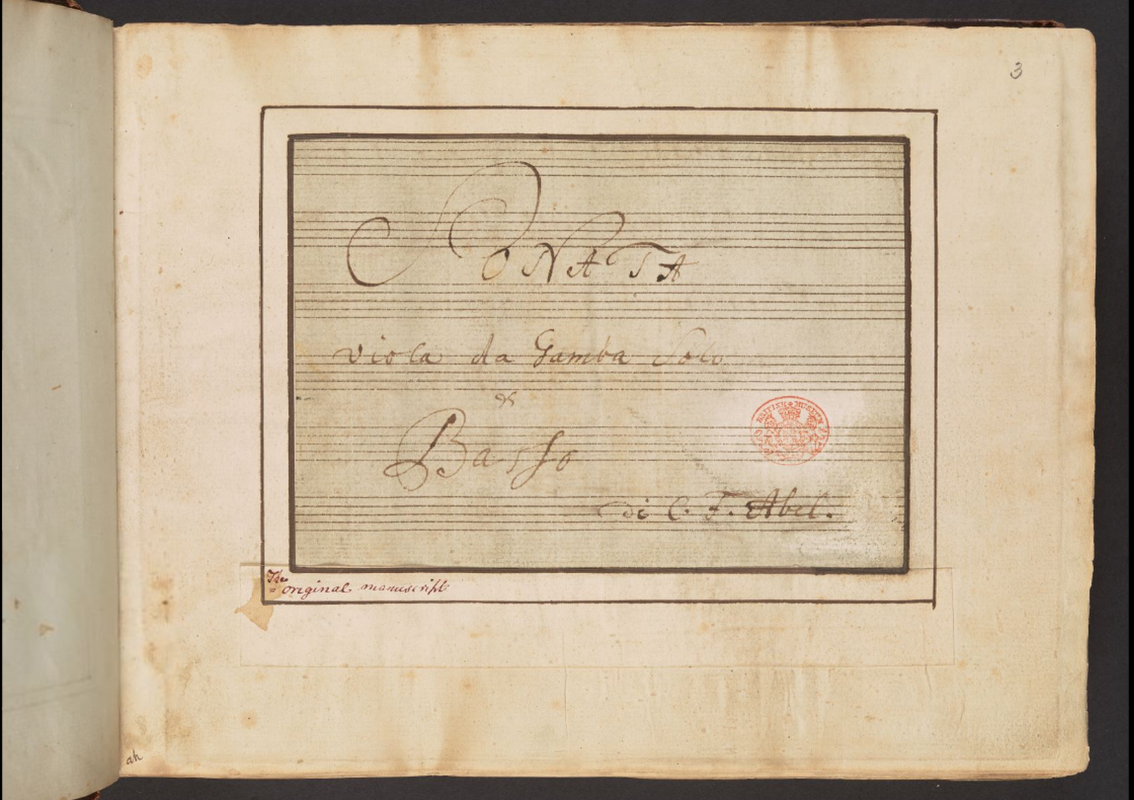 3
SONATA
Viola da Gamba Solo
&
Basso
BRITISH MUSEUM
di C. F. Abel.
The
original manuscript